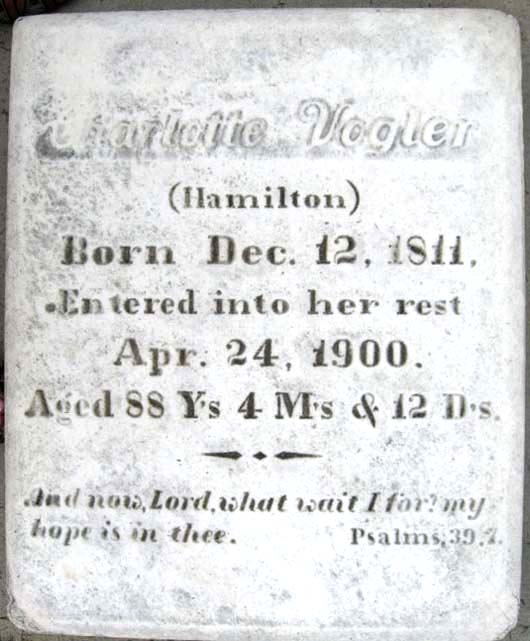 Charlotte Vogler
(Hamilton)
Born Dec. 12, 1811,
Entered into her rest
Apr. 24, 1900.
Aged 88 Y's 4 M's & 12 D's.
And now, Lord, what wait I for? my
hope is in thee. Psalms, 39, 7.